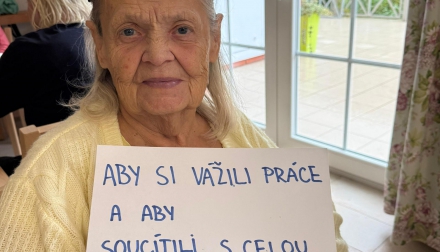 ABY SI VAŽILI PRÁCE
A ABY
SOUCÍTILI S CELOU